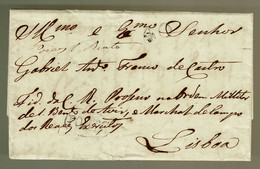 Illmo e Exmo Senhor
Gabriel Anto Franco de Castro
Fid. da C. R. Professo na Ordem Militar
de S. Bento de Aviz, e Marechal de Campo
dos Reaes Exercitos
Lisboa